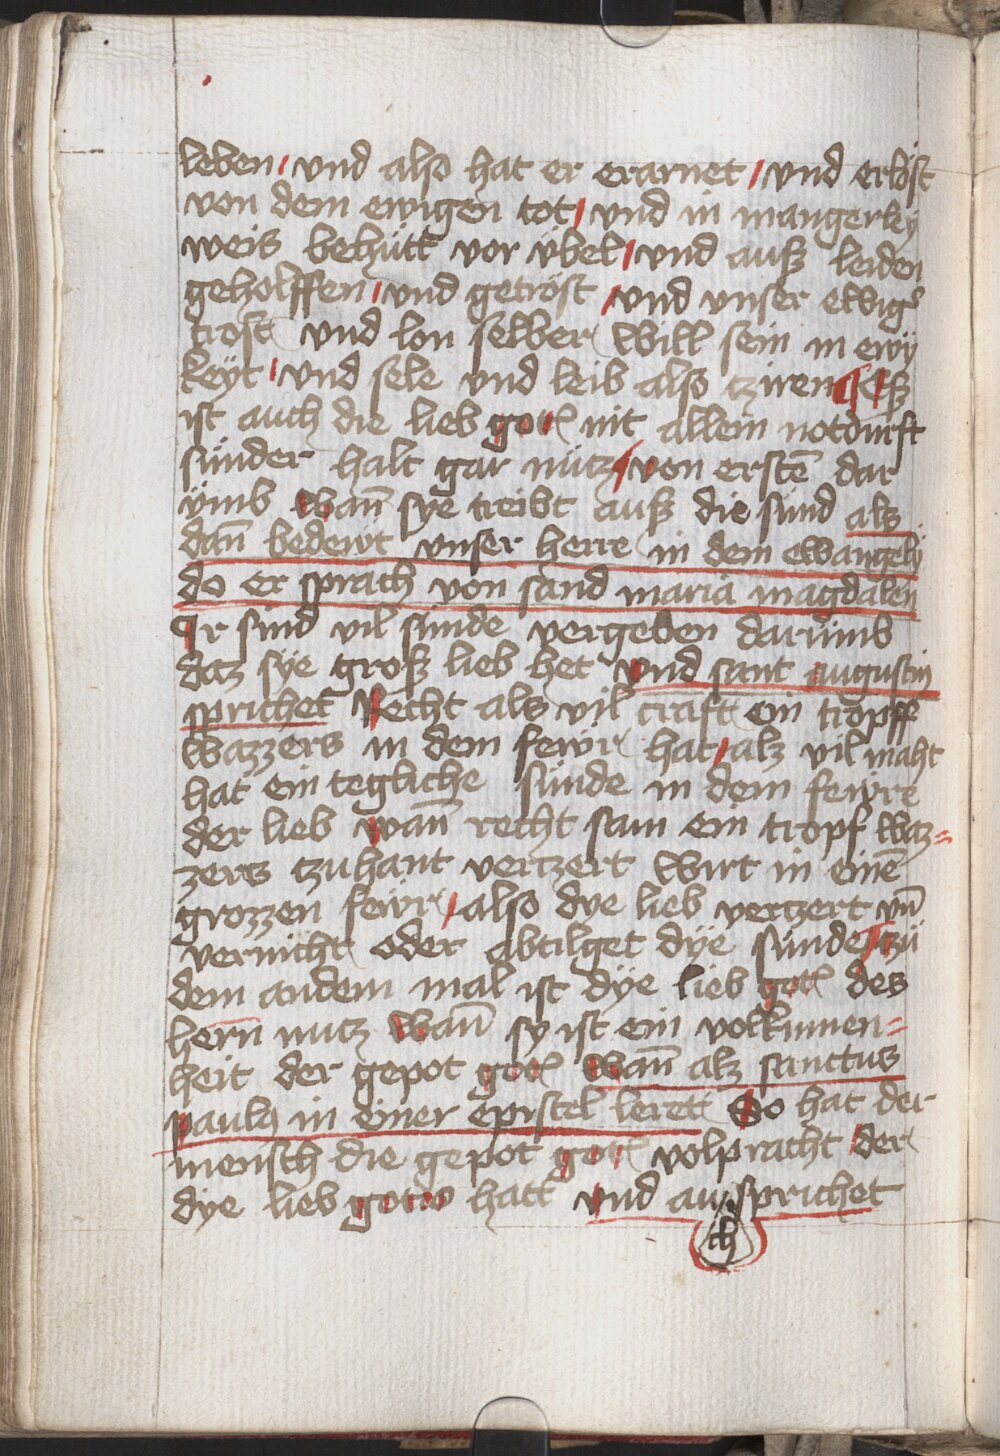 leben / vnd also hat er erarnet / vnd erlöst
von dem ewigen tot / vnd in mangerley
weis behütt vor vbel / vnd auß leiden
geholffen / vnd getröst / vnd vnser ewigs
trost vnd lon selber will sein in ewi
keyt / vnd sele vnd leib also tziren ¶ Eß
ist auch die lieb gotz nit allein notdurft
sünder halt gar nütz / von ersten̄ dar
vmb wan̄ sye treibt auß die sünd als
dan̄ bedewt vnser herre in dem ewangely
do er sprach von sand maria magdalen
Ir sind vil sünde vergeben darümb
daz sye groß lieb het vnd sant augustin
sprichet Recht als vil craft ein tropff
wazzers in dem fewr hat / alz vil maht
hat ein tegliche sünde in dem fewre
der lieb wan̄ recht sam ein tropf waz=
zers tzuhant vertzert wirt in eine̅
grozzen fewr / also dye lieb vertzert vn̄
vernicht oder abtilget dye sünde ¶ tzü
dem andern mal ist dye lieb gotz des
hern nutz wan̄ sy ist ein volkumen=
heit der gepot gotz wan̄ alz sanctus
paulus in einer epistel leret So hat der
mensch die gepot gotz volpracht / der
dye lieb gottes hatt vnd au sprichet
ch